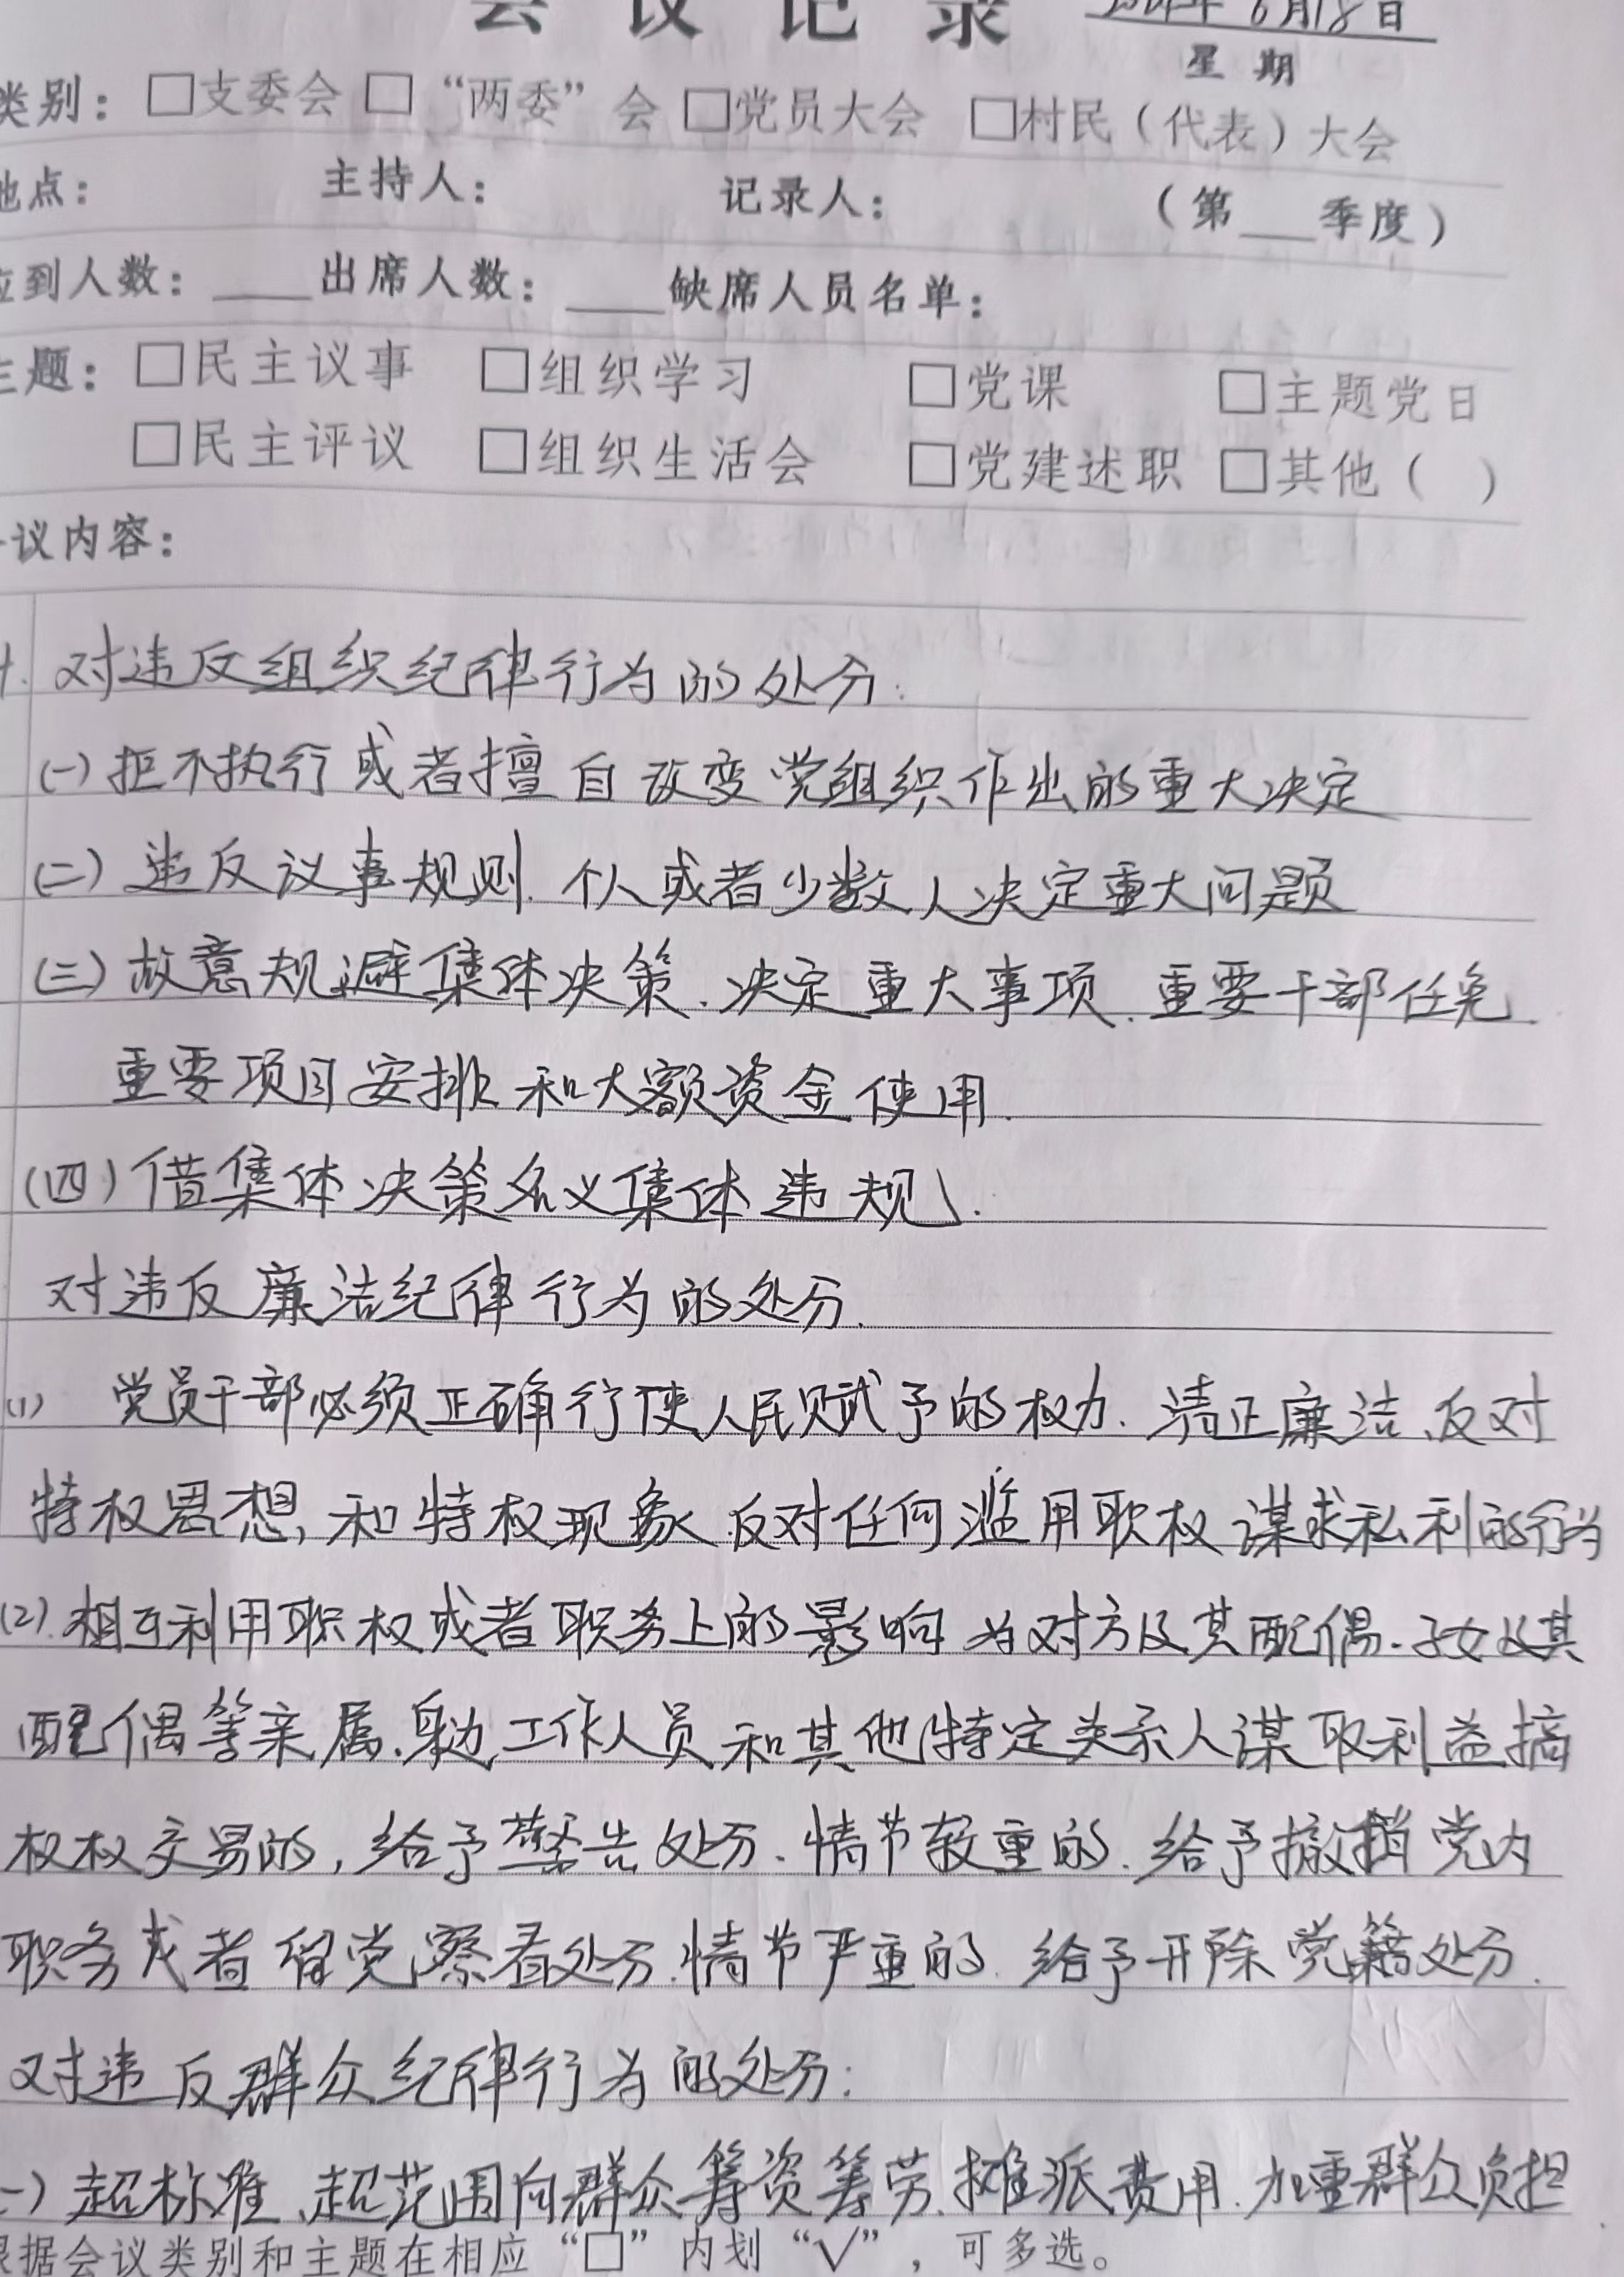 会议记录 2024年6月18日
星期
类别：□支委会 □“两委”会 □党员大会 □村民（代表）大会
地点： 主持人： 记录人： （第___季度）
应到人数：____出席人数：____缺席人员名单：
主题：□民主议事 □组织学习 □党课 □主题党日
□民主评议 □组织生活会 □党建述职 □其他（ ）
议内容：
对违反组织纪律行为的处分：
(一)拒不执行或者擅自改变党组织作出的重大决定
(二)违反议事规则.个人或者少数人决定重大问题
(三)故意规避集体决策.决定重大事项.重要干部任免.
重要项目安排和大额资金使用.
(四)借集体决策名义集体违规.
对违反廉洁纪律行为的处分.
(1) 党员干部必须正确行使人民赋予的权力.清正廉洁、反对
特权思想,和特权现象.反对任何滥用职权谋求私利的行为
(2).相互利用职权或者职务上的影响为对方及其配偶.子女及其
配偶等亲属.身边工作人员和其他特定关系人谋取利益搞
权权交易的,给予警告处分.情节较重的.给予撤销党内
职务或者留党察看处分.情节严重的.给予开除党籍处分.
对违反群众纪律行为的处分:
一)超标准、超范围向群众筹资筹劳.摊派费用.加重群众负担
根据会议类别和主题在相应“□”内划“√”，可多选。